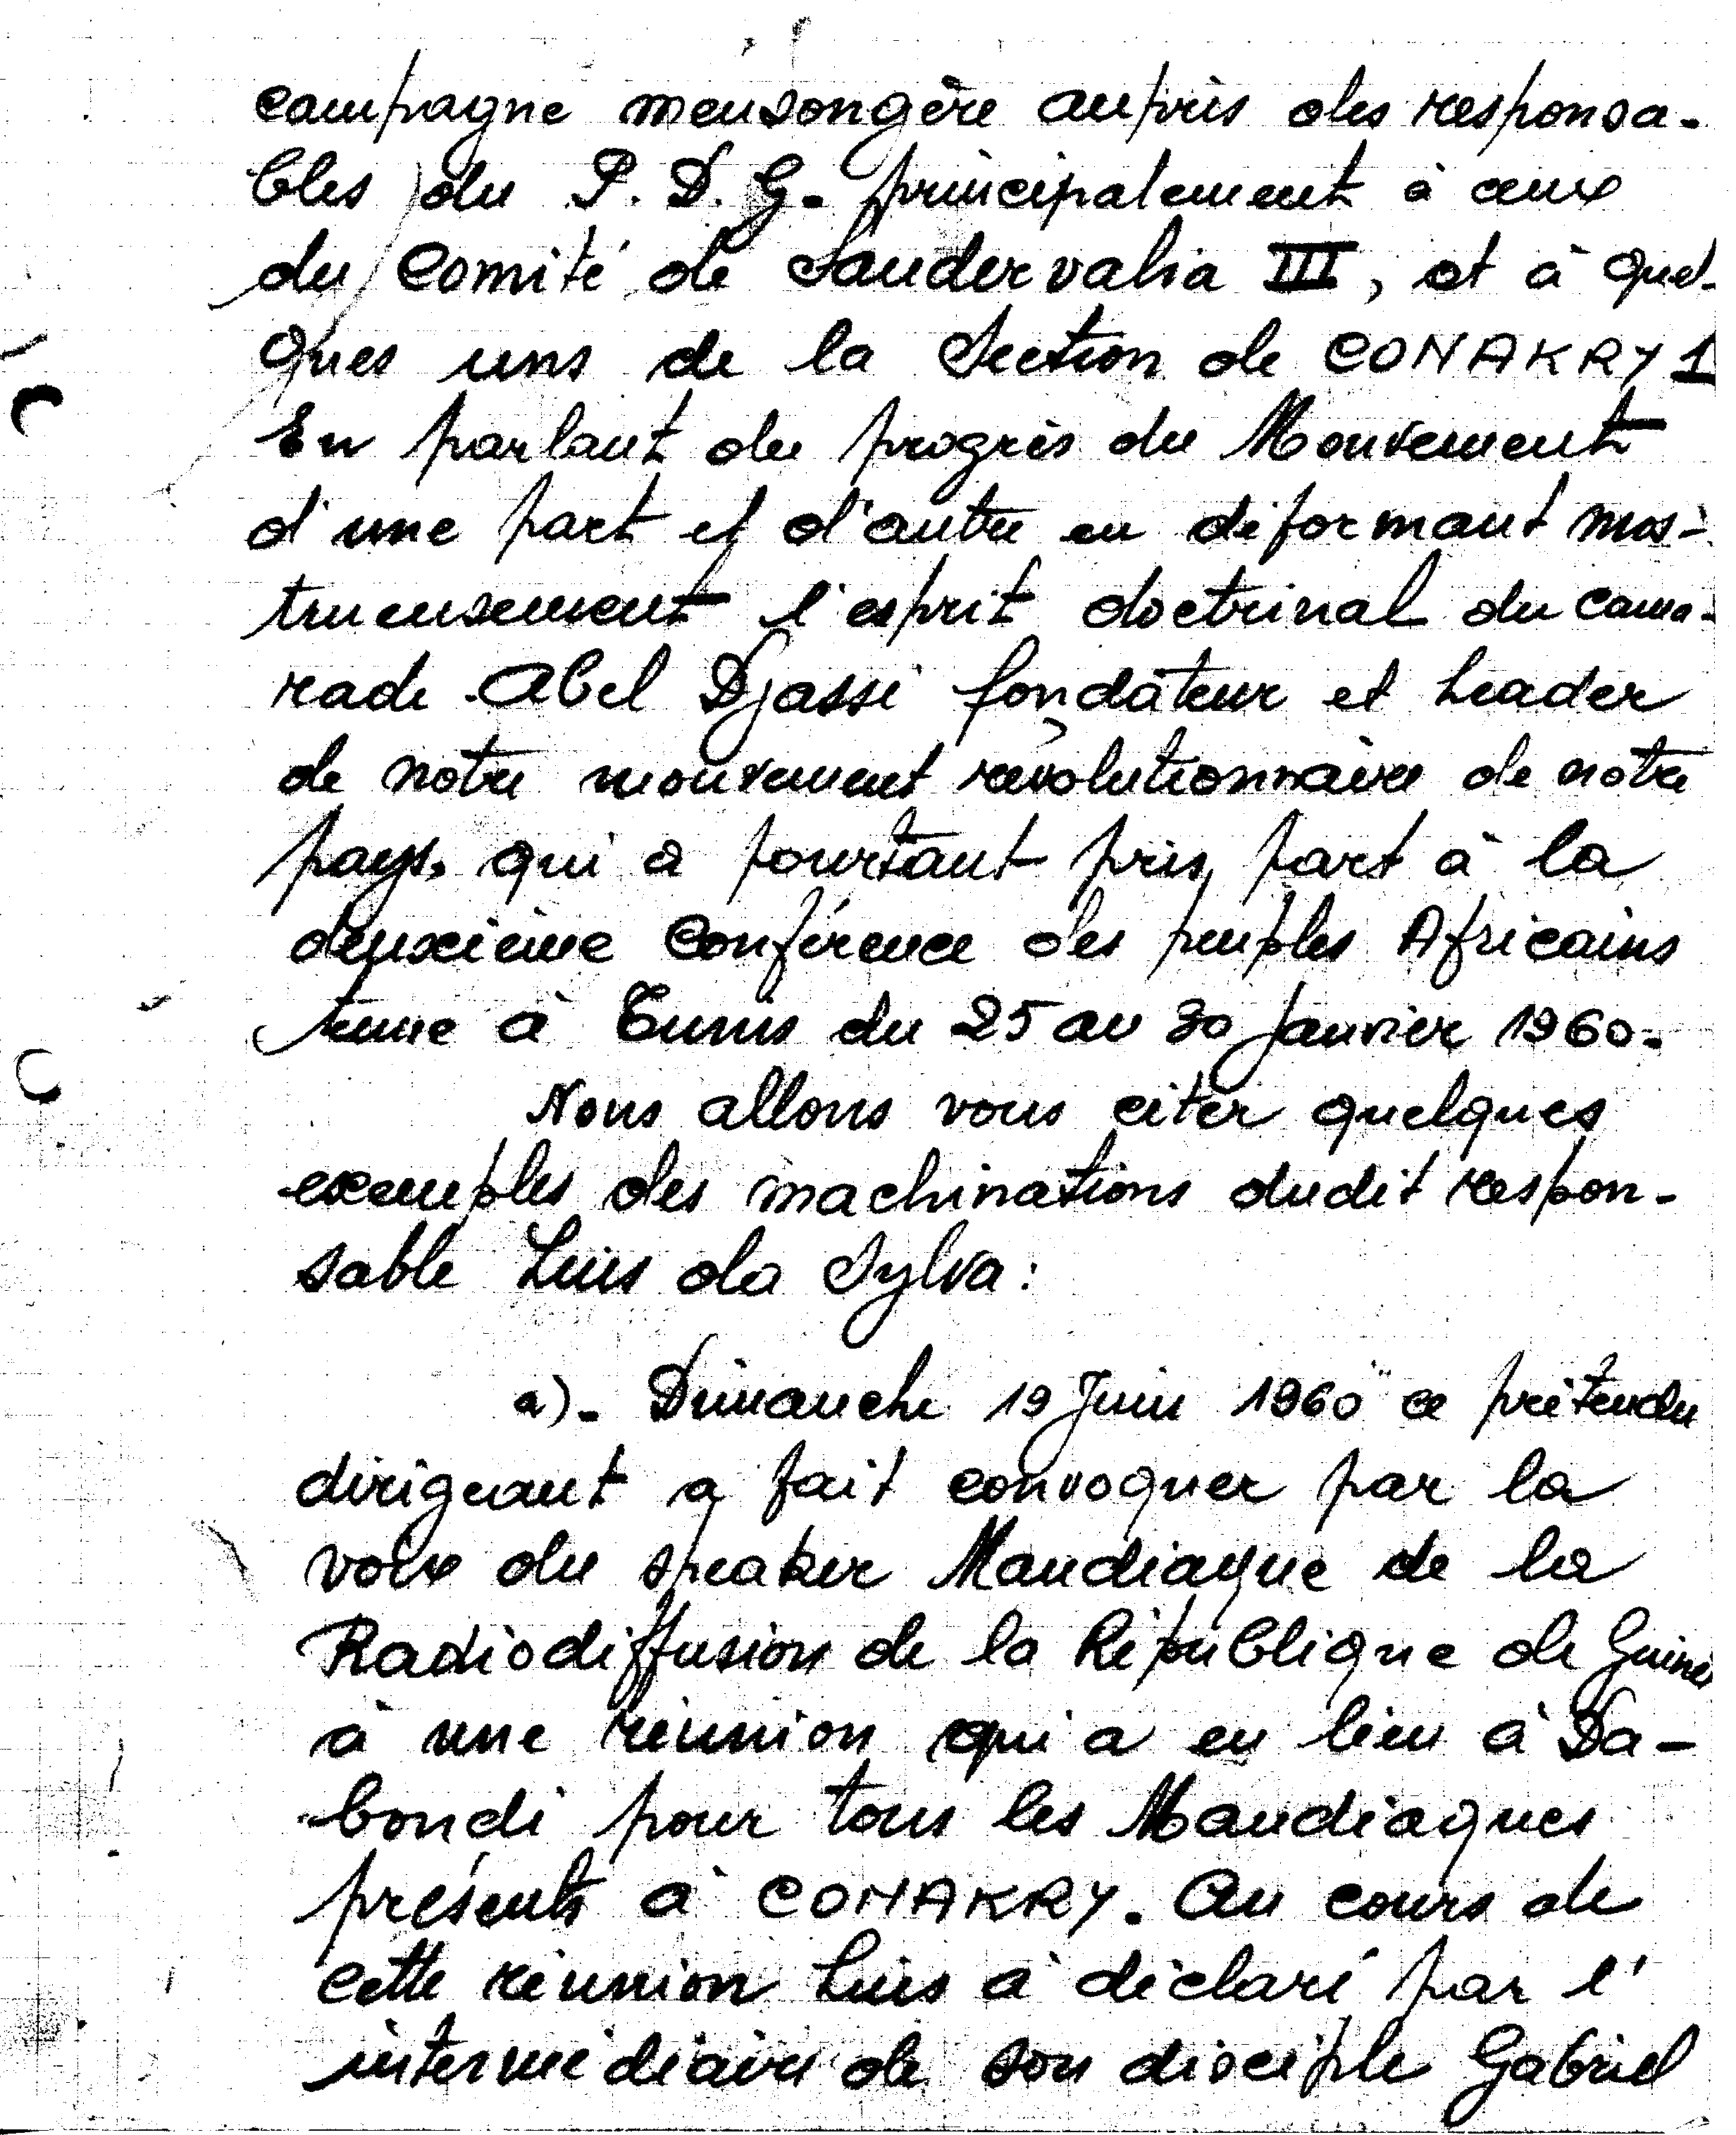 campagne mensongère auprès des responsa-
bles du P. D. G. principalement à ceux
du Comité de Sandervalia III, et à quel-
ques uns de la Section de CONAKRY 1
En parlant du progrès du Mouvement
d'une part et d'autre en déformant mos-
trueusement l'esprit doctrinal du cama-
rade Abel Djassi fondateur et Leader
de notre mouvement révolutionnaire de notre
pays. qui a pourtant pris part à la
deuxième Conférence des peuples Africains
tenue à Tunis du 25 au 30 Janvier 1960.
Nous allons vous citer quelques
exemples des machinations dudit respon-
sable Luis da Sylva:
a)- Dimanche 19 Juin 1960 ce prétendu
dirigeant a fait convoquer par la
voix du speaker Mandiaque de la
Radiodiffusion de la République de Guinée
à une réunion qui a eu lieu à Da-
bondi pour tous les Mandiaques
présents à CONAKRY. Au cours de
cette réunion Luis a déclaré par l'
intermédiaire de son disciple Gabriel